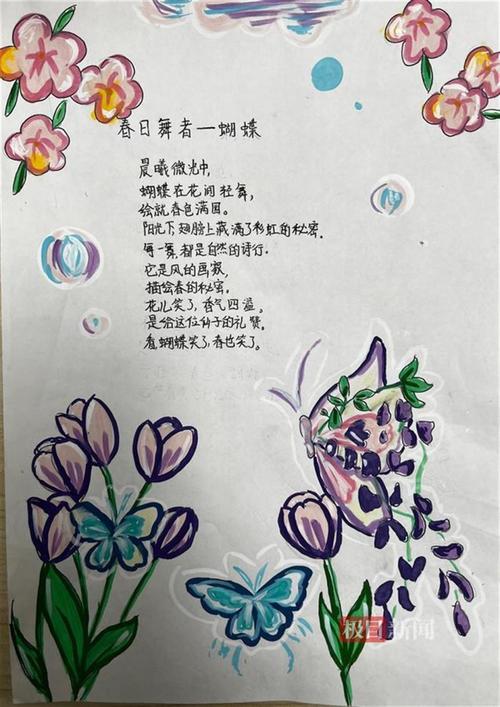 极目新闻
春日舞者—蝴蝶
晨曦微光中,
蝴蝶在花间轻舞,
绘就春色满园。
阳光下,翅膀上藏满了彩虹的秘密.
每一舞,都是自然的诗行.
它是风的画家,
描绘春的秘密.
花儿笑了,香气四溢.
是给这位仙子的礼赞.
看蝴蝶笑了,春也笑了。
极目新闻